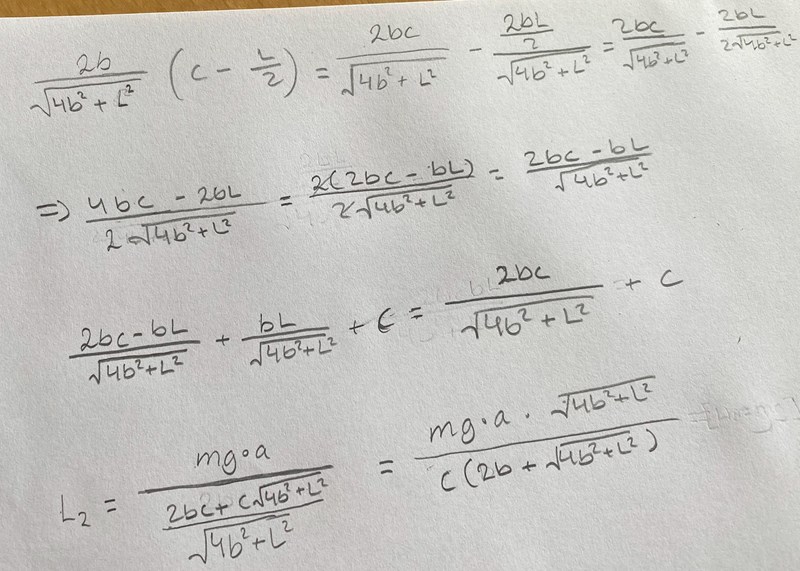 2b/√(4b² + L²) (c - L/2) = 2bc/√(4b² + L²) - (2bL/2)/√(4b² + L²) = 2bc/√(4b² + L²) - 2bL/(2√(4b² + L²))
⇒ (4bc - 2bL)/(2·√(4b² + L²)) = 2(2bc - bL)/(2√(4b² + L²)) = (2bc - bL)/√(4b² + L²)
(2bc - bL)/√(4b² + L²) + bL/√(4b² + L²) + c = 2bc/√(4b² + L²) + c
L₂ = mg·a/((2bc + c√(4b² + L²))/√(4b² + L²)) = mg·a·√(4b² + L²)/(c(2b + √(4b² + L²)))